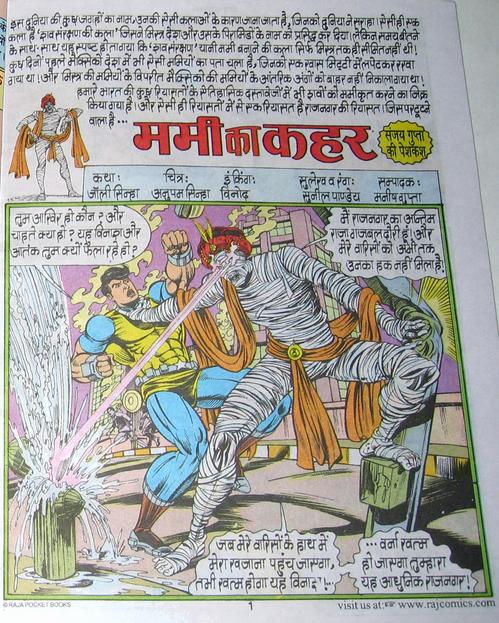 इस दुनिया की कुछ जगहों का नाम, उनकी ऐसी कलाओं के कारण जाना जाता है, जिनको दुनिया ने सराहा। ऐसी ही एक
कला है 'शव संरक्षण की कला' जिसने मिस्त्र देश और उसके पिरामिडों के नाम को प्रसिद्ध कर दिया। लेकिन समय बीतने
के साथ-साथ यह स्पष्ट हो गया कि 'शव संरक्षण' यानी ममी बनाने की कला सिर्फ मिस्त्र तक ही सीमित नहीं थी।
कुछ दिनों पहले मैक्सिको देश में भी ऐसी ममियों का पता चला है, जिनको एक खास मिट्टी में लपेटकर रखा
गया था। और मिस्त्र की ममियों के विपरीत मैक्सिको की ममियों के आंतरिक अंगों को बाहर नहीं निकाला गया था।
हमारे भारत की कुछ रियासतों के ऐतिहासिक दस्तावेजों में भी शवों को ममीकृत करने का जिक्र
किया गया है। और ऐसी ही रियासतों में से एक रियासत है राजनगर की रियासत। जिस पर टूटने
वाला है...
ममी का कहर
संजय गुप्ता
की पेशकश
कथा: चित्र: इंकिंग: सुलेख व रंग: सम्पादक:
जॉली सिन्हा अनुपम सिन्हा विनोद सुनील पाण्डेय मनीष गुप्ता
तुम आखिर हो कौन? और
चाहते क्या हो? यह विनाश और
आतंक तुम क्यों फैला रहे हो?
मैं राजनगर का अन्तिम
राजा गजबल दौरी हूं। और
मेरे वारिसों को अभी तक
उनका हक नहीं मिला है!
जब मेरे वारिसों के हाथ में
मेरा खजाना पहुंच जाएगा,
तभी खत्म होगा यह विनाश!--
... वर्ना खत्म
हो जाएगा तुम्हारा
यह आधुनिक राजनगर!
© RAJA POCKET BOOKS
1
visit us at:☞ www.rajcomics.com